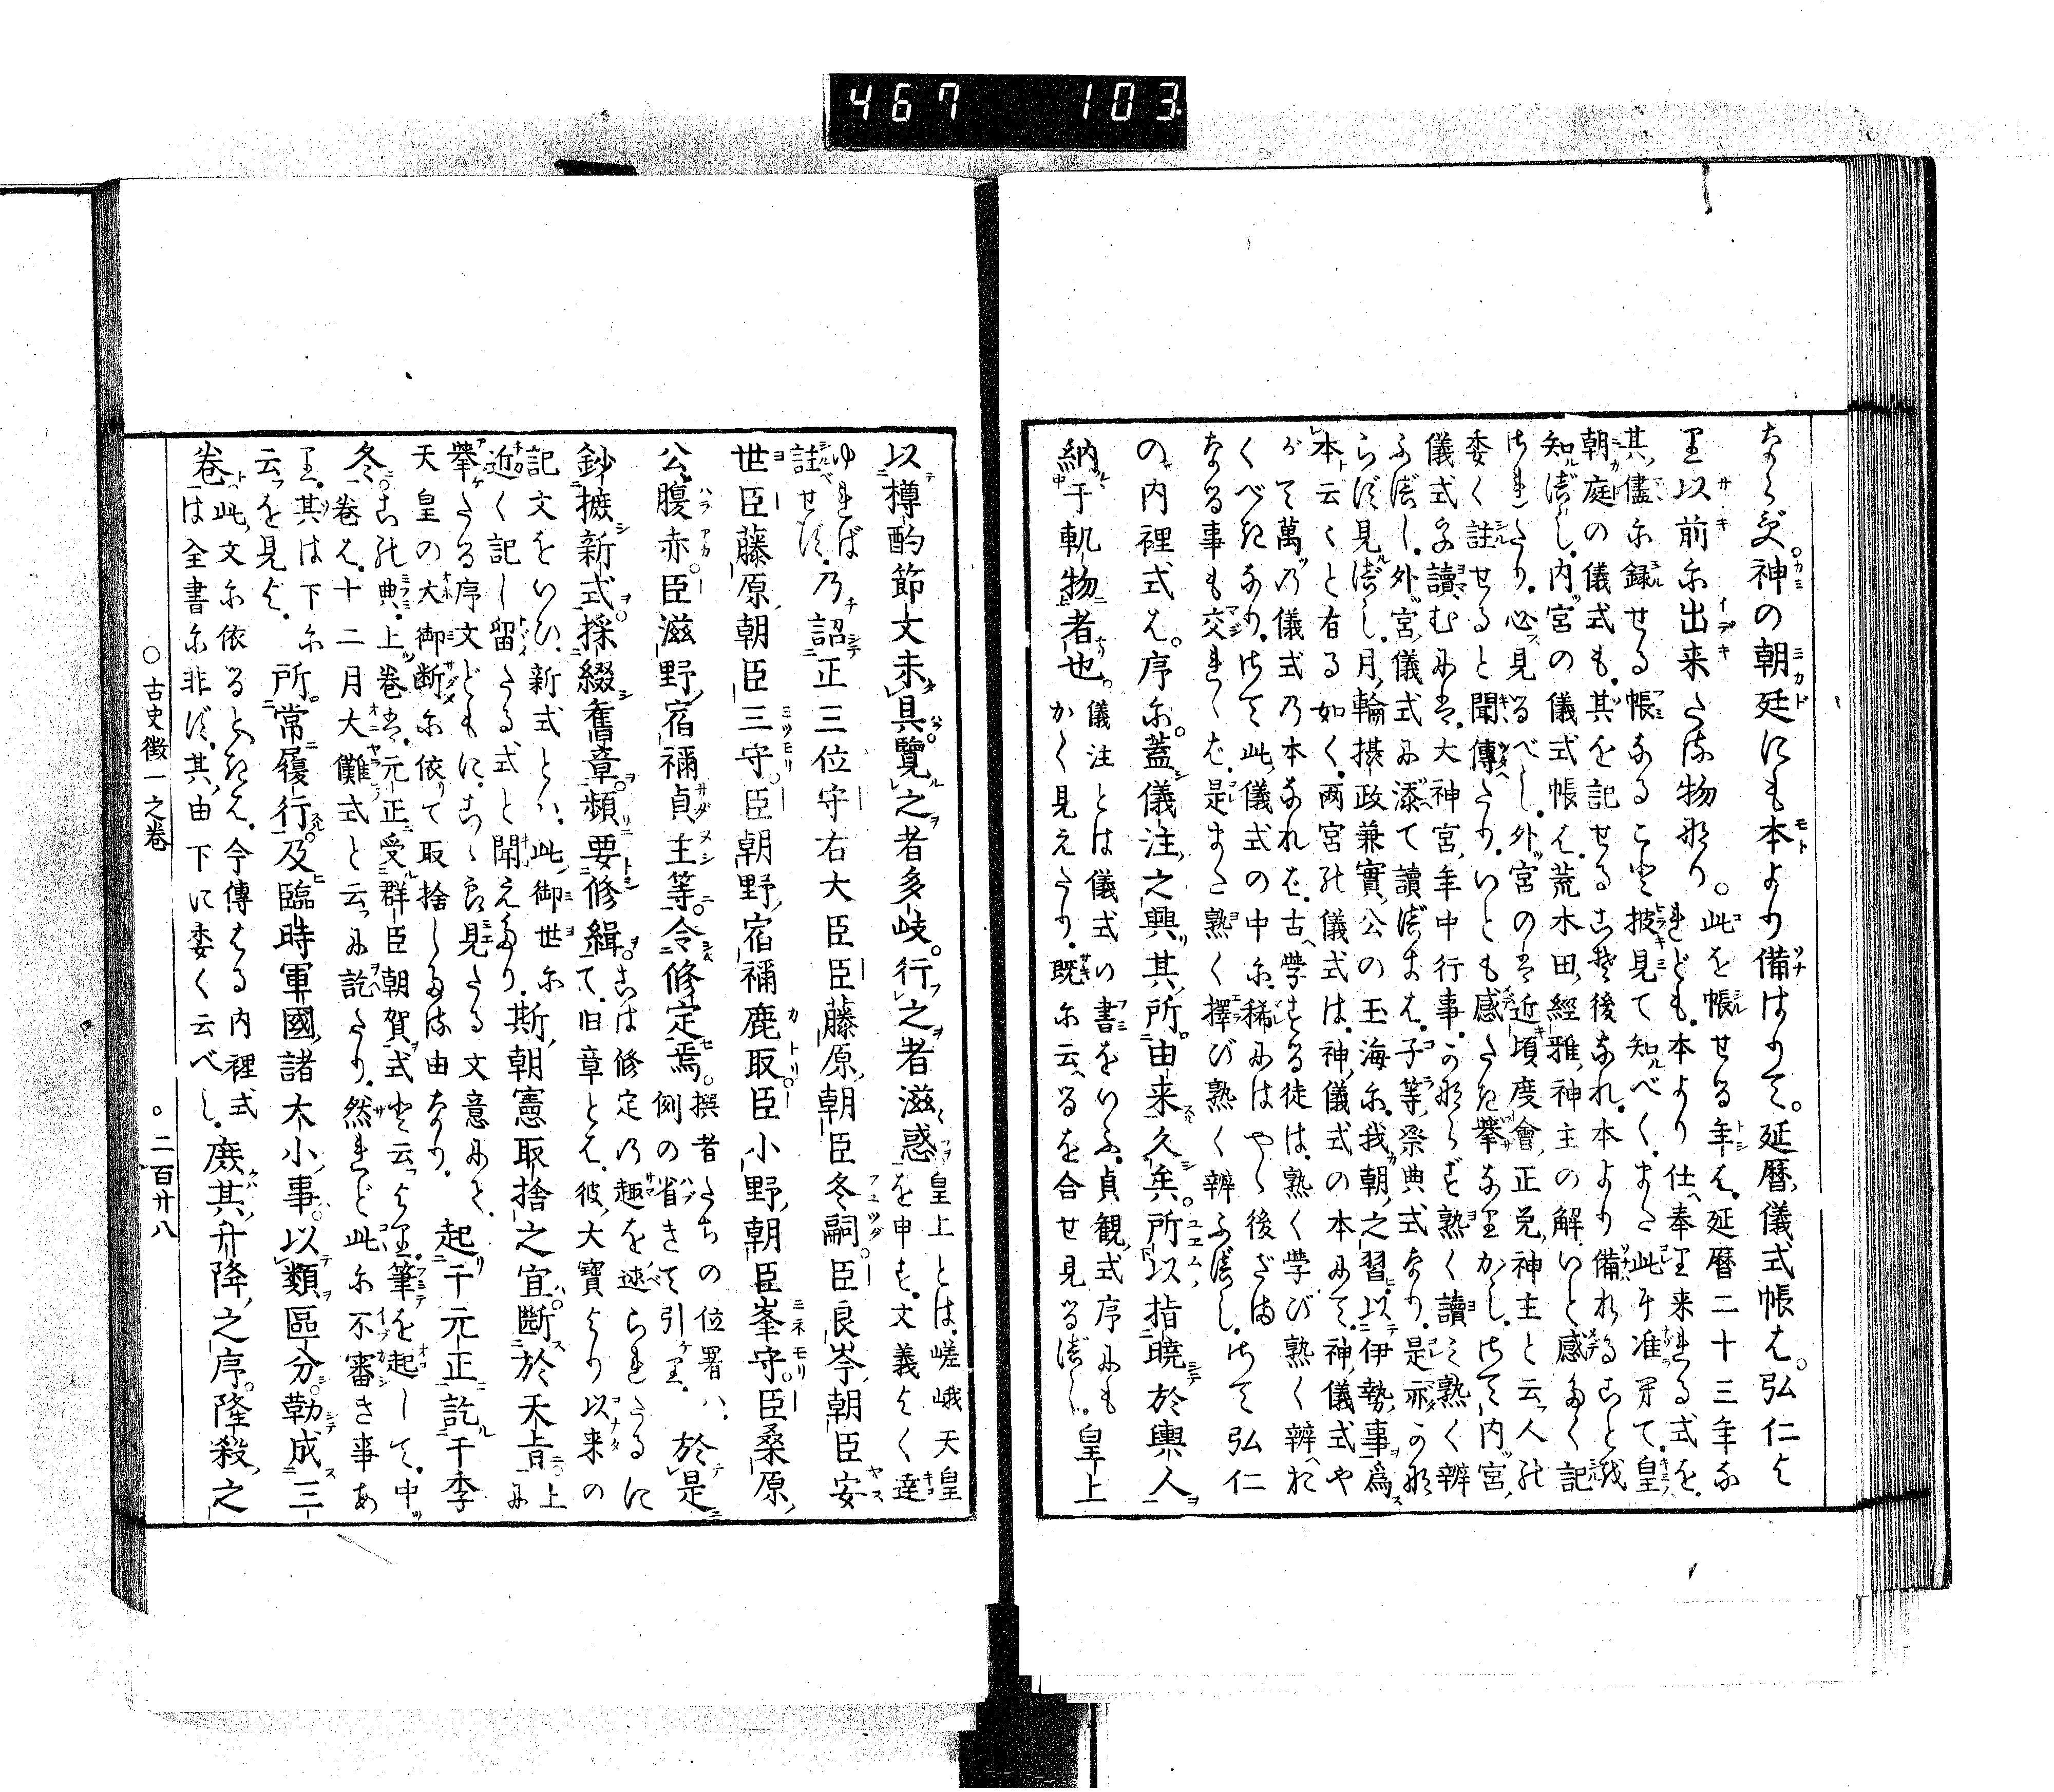 467 103
ならず。神の朝廷にも本より備はりて。延暦儀式帳は。弘仁より
以前に出来たる物なり。此を帳せる年は。延暦二十三年な
れども。本より仕奉り来れる式を。
其儘に録せる帳なること披見て知べく。また此に准へて。皇
朝庭の儀式も。其を記せるこそ後なれ。本より備れること我
知べし。内宮の儀式帳は。荒木田經雅神主の解いと感たく記
されたり。必見るべし。外宮のは近頃度會正兌神主と云人の
委く註せると聞傳たり。いとも感たき擧なりかし。さて内宮
儀式を讀むには。大神宮年中行事。かならず熟く讀み熟く辨
ふべし。外宮儀式に添て讀べきは。子等祭典式なり。是亦かな
らず見べし。月輪攝政兼實公の玉海に。我朝之習。以伊勢事爲
本と云々と有る如く。両宮の儀式は。神儀式の本にて。神儀式や
がて萬の儀式の本なれば。古學する徒は。熟く學び熟く辨へお
くべきなり。さて此儀式の中に。稀にはやゝ後ざま
なる事も交れゝば。是また熟く擇び熟く辨ふべし。さて弘仁
の内裡式は。序に。蓋儀注之興。其所由来久矣。所以指曉於輿人
納于軌物者也。儀注とは儀式の書をいふ。貞観式序にも
かく見えたり。既に云へるを合せ見るべし。皇上
以樽酌節文未具覽之者多岐。行之者滋惑皇上とは。嵯峨天皇
を申す。文義よく達
ゆれば。
註せず。乃詔正三位守右大臣臣藤原朝臣冬嗣。臣良岑朝臣安
世臣藤原朝臣三守。臣朝野宿禰鹿取臣小野朝臣峯守。臣桑原
公腹赤。臣滋野宿禰貞主等。令修定焉。撰者たちの位署ハ。
例の省きて引けり。於是
鈔摭新式。採綴舊章。頻要修緝。こは修定の趣を述られたるに
て。旧章とは。彼大寶より以来の
記文をいひ。新式とハ。此御世に
近く記し留たる式と聞えたり。斯朝憲取捨之宜斷於天旨。上に
擧たる序文どもに。こゝら見たる文意にて。
天皇の大御断に依て取捨したる由なり。起于元正訖于季
冬。この典。上巻は。元正受群臣朝賀式と云より。筆を起して。中
巻は。十二月大儺式と云に訖たり。然れど此に不審き事あ
り。其は下に
云を見よ。所常履行。及臨時軍國諸大小事。以類區分。勒成三
巻。此文に依るときは。今傳はる内裡式
は全書に非ず。其由下に委く云べし。庶其升降之序。隆殺之
○古史徴一之巻
○二百廿八